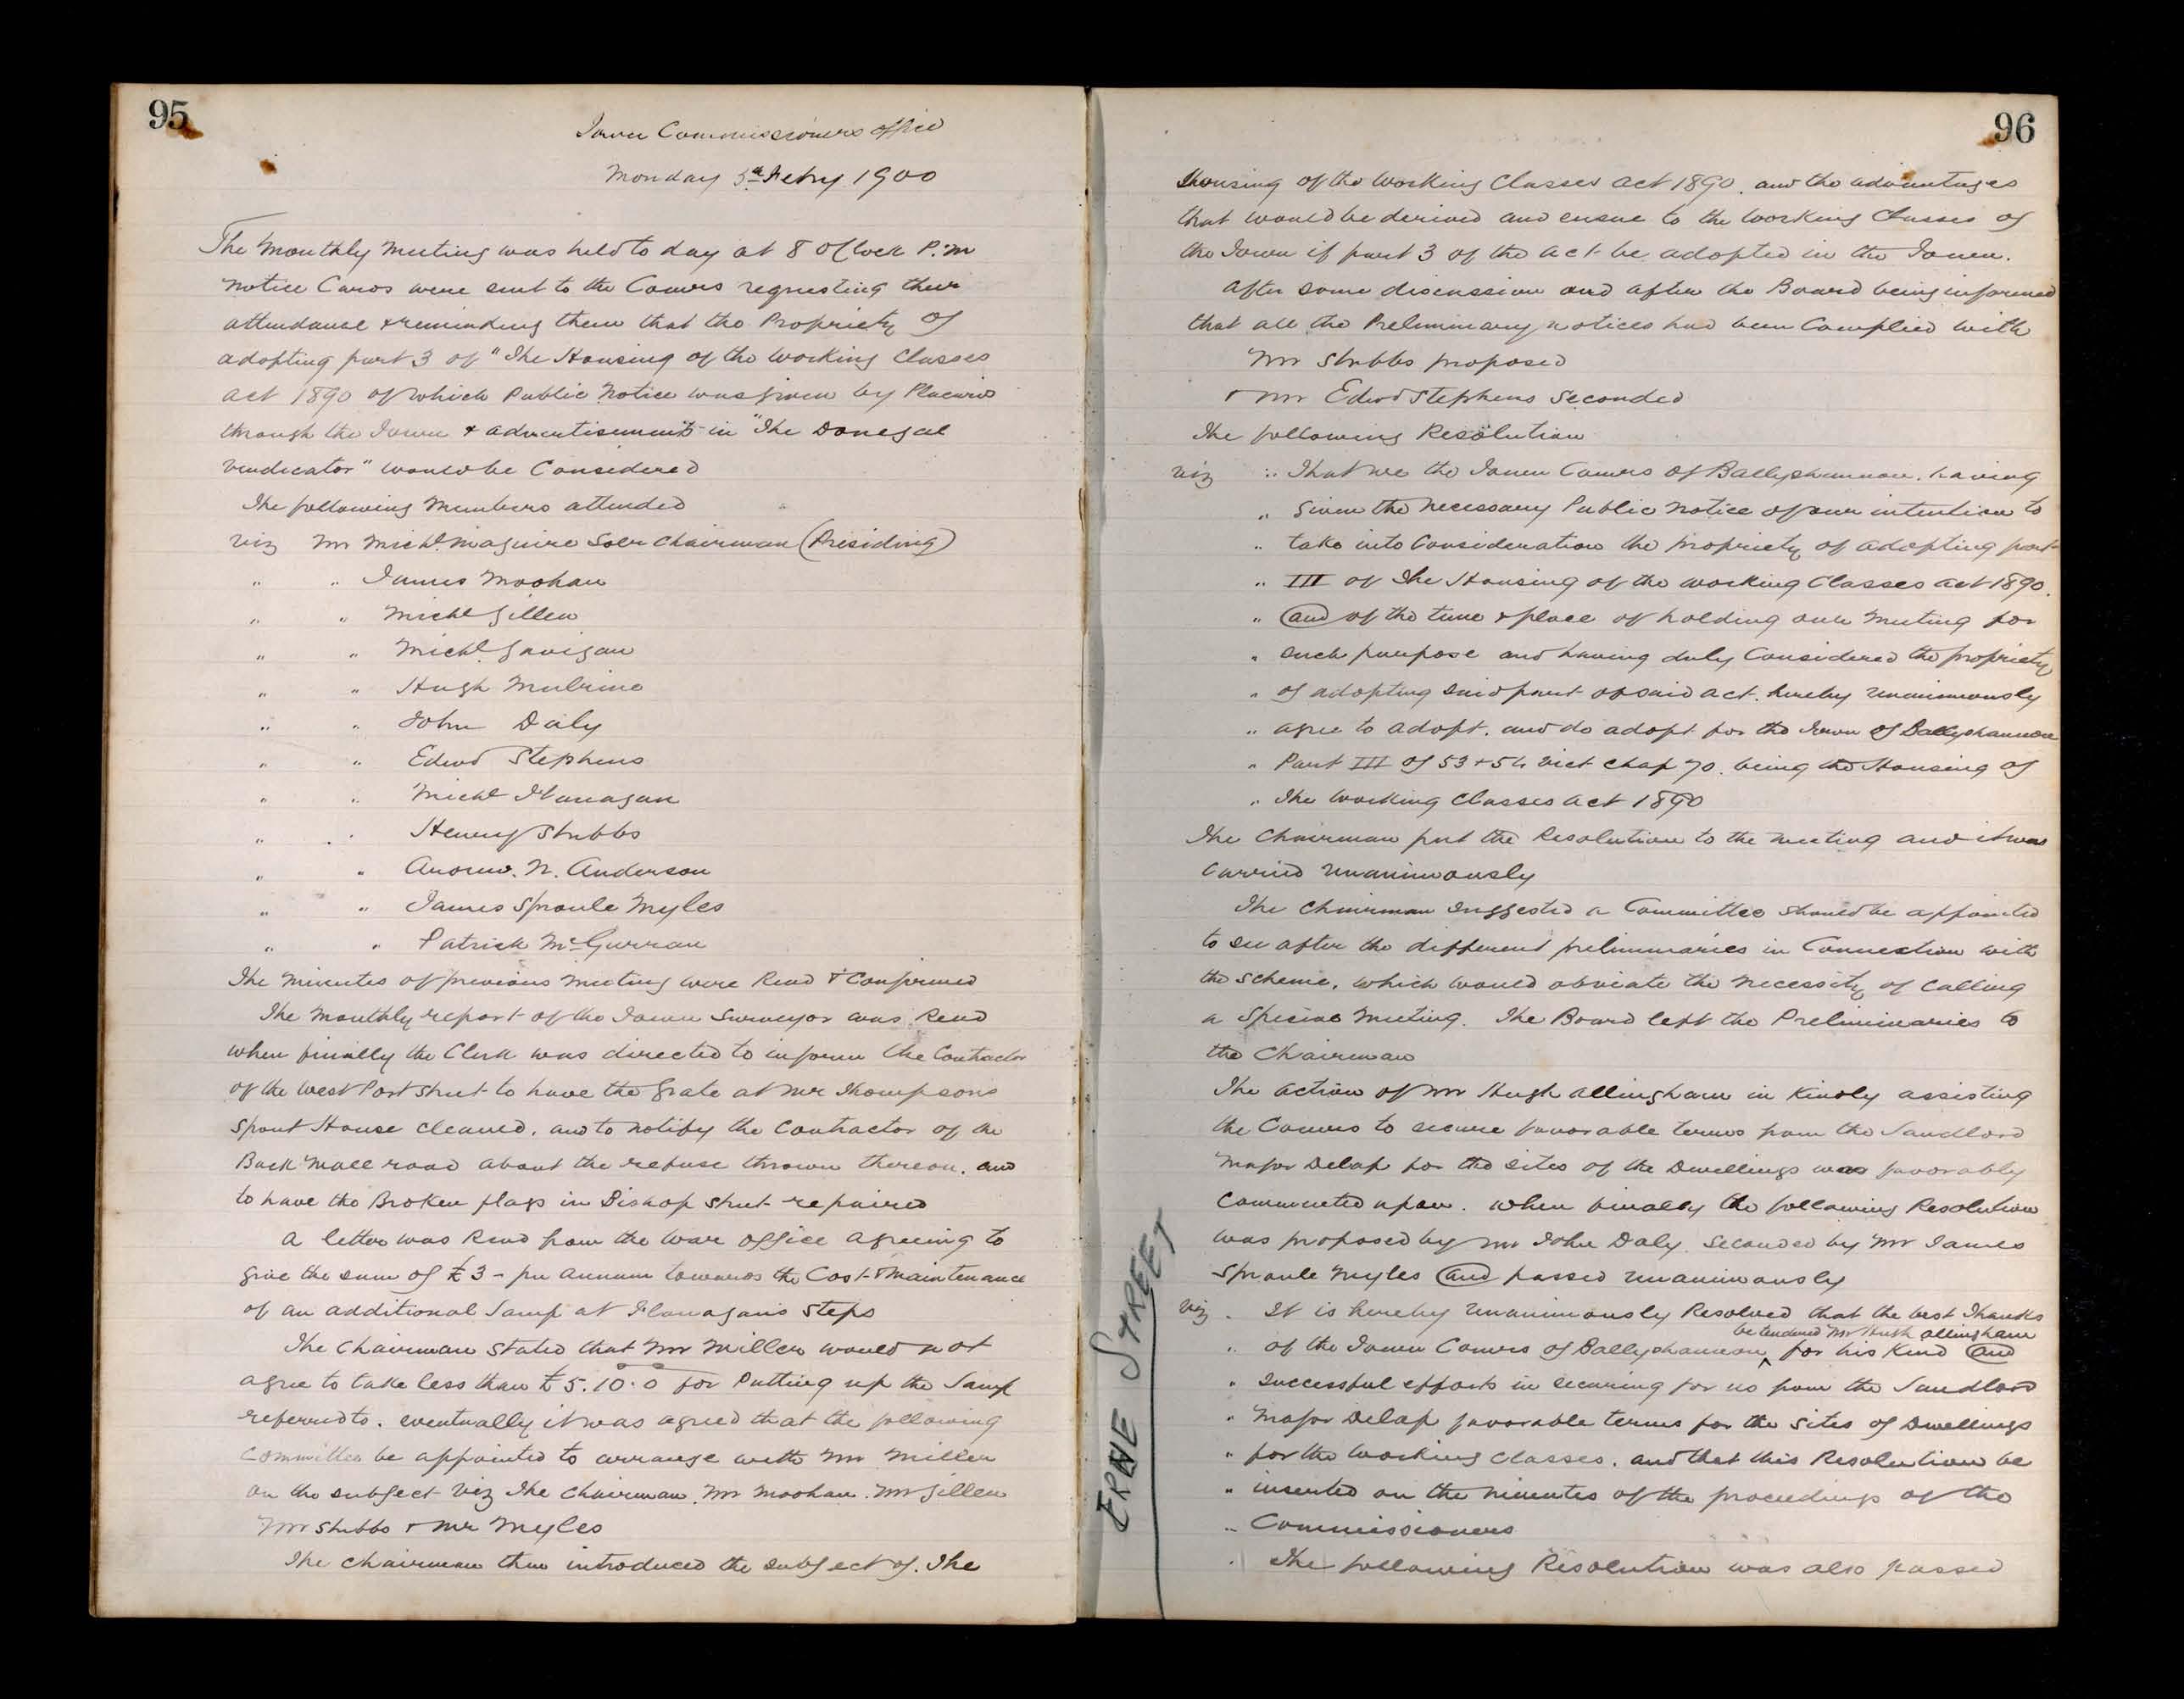 95
Town Commissioners office
Monday 5th Febry 1900
The Monthly Meeting was held to day at 8 O'Clock P.M
Notice Cards were sent to the Comrs requesting their
attendance & reminding them that the Propriety of
adopting part 3 of "The Housing of the Working Classes
Act 1890 of which Public Notice was given by Placard
through the Town & advertisements in "The Donegal
Vindicator" would be Considered
The following Members attended
Viz Mr Michl Maguire Solr Chairman (Presiding)
" " James Moohan
" " Michl Gillen
" " Michl Gavigan
" " Hugh
" " John Daly
" " Edwd Stephens
" " Michl Flanagan
" " Henry Stubbs
" " Andrew. N. Anderson
" " James Sproule Myles
" " Patrick McGurran
The Minutes of previous Meeting were Read & Confirmed
The Monthly report of the Town Surveyor was Read
when finally the Clerk was directed to inform the Contractor
of the West Port Street to have the Grate at Mr Thompsons
Spout House cleaned. and to notify the Contractor of the
Back Mall road about the refuse thrown thereon. and
to have the Broken flags in Bishop Street repaired
A letter was Read from the War Office agreeing to
give the sum of £3 - per Annum towards the Cost & Maintenance
of an additional Lamp at Flanagans Steps
The Chairman stated that Mr Miller would not
agree to take less than £5.10.0 for Putting up the Lamp
referred to. eventually it was agreed that the following
Committee be appointed to arrange with Mr Miller
on the subject Viz The Chairman. Mr Moohan. Mr Gillen
Mr Stubbs & Mr Myles
The Chairman then introduced the subject of. The
96
Housing of the Working Classes Act 1890. and the advantages
that would be derived and ensue to the Working Classes of
the Town if part 3 of the Act be adopted in the Town.
After some discussion and after the Board being informed
that all the Preliminary notices had been Complied with
Mr Stubbs proposed
& Mr Edwd Stephens Seconded
The following Resolution
Viz " That we the Town Comrs of Ballyshannon. having
" Given the necessary Public Notice of our intention to
" take into Consideration the propriety of adopting part
" III of The Housing of the Working Classes Act 1890.
" and of the time & place of holding our Meeting for
" such purpose and having duly Considered the propriety
" of adopting said part of said act. hereby unanimously
" agree to adopt. and do adopt for the Town of Ballyshannon
" Part III of 53 & 54 Vict Chap 70. being the Housing of
" The Working Classes Act 1890
The Chairman put the Resolution to the Meeting and it was
Carried Unanimously
The Chairman suggested a Committee should be appointed
to see after the different preliminaries in Connection with
the Scheme, which would obviate the necessity of Calling
a Special Meeting. The Board left the Preliminaries to
the Chairman
The action of Mr Hugh Allingham in Kindly assisting
the Comrs to secure favorable terms from the Landlord
Major Delap for the sites of the Dwellings was favorably
Commented upon. When finally the following Resolution
was proposed by Mr John Daly. Seconded by Mr James
Sproule Myles and passed Unanimously
Viz . It is hereby Unanimously Resolved that the best Thanks
be tendered Mr Hugh Allingham
" of the Town Comrs of Ballyshannon ^ for his Kind and
" Successful efforts in securing for us from the Landlord
" Major Delap favorable terms for the sites of Dwellings
" for the Working Classes. and that this Resolution be
" inserted on the Minutes of the proceedings of the
" Commissioners
The following Resolution was also passed
ERNE STREET